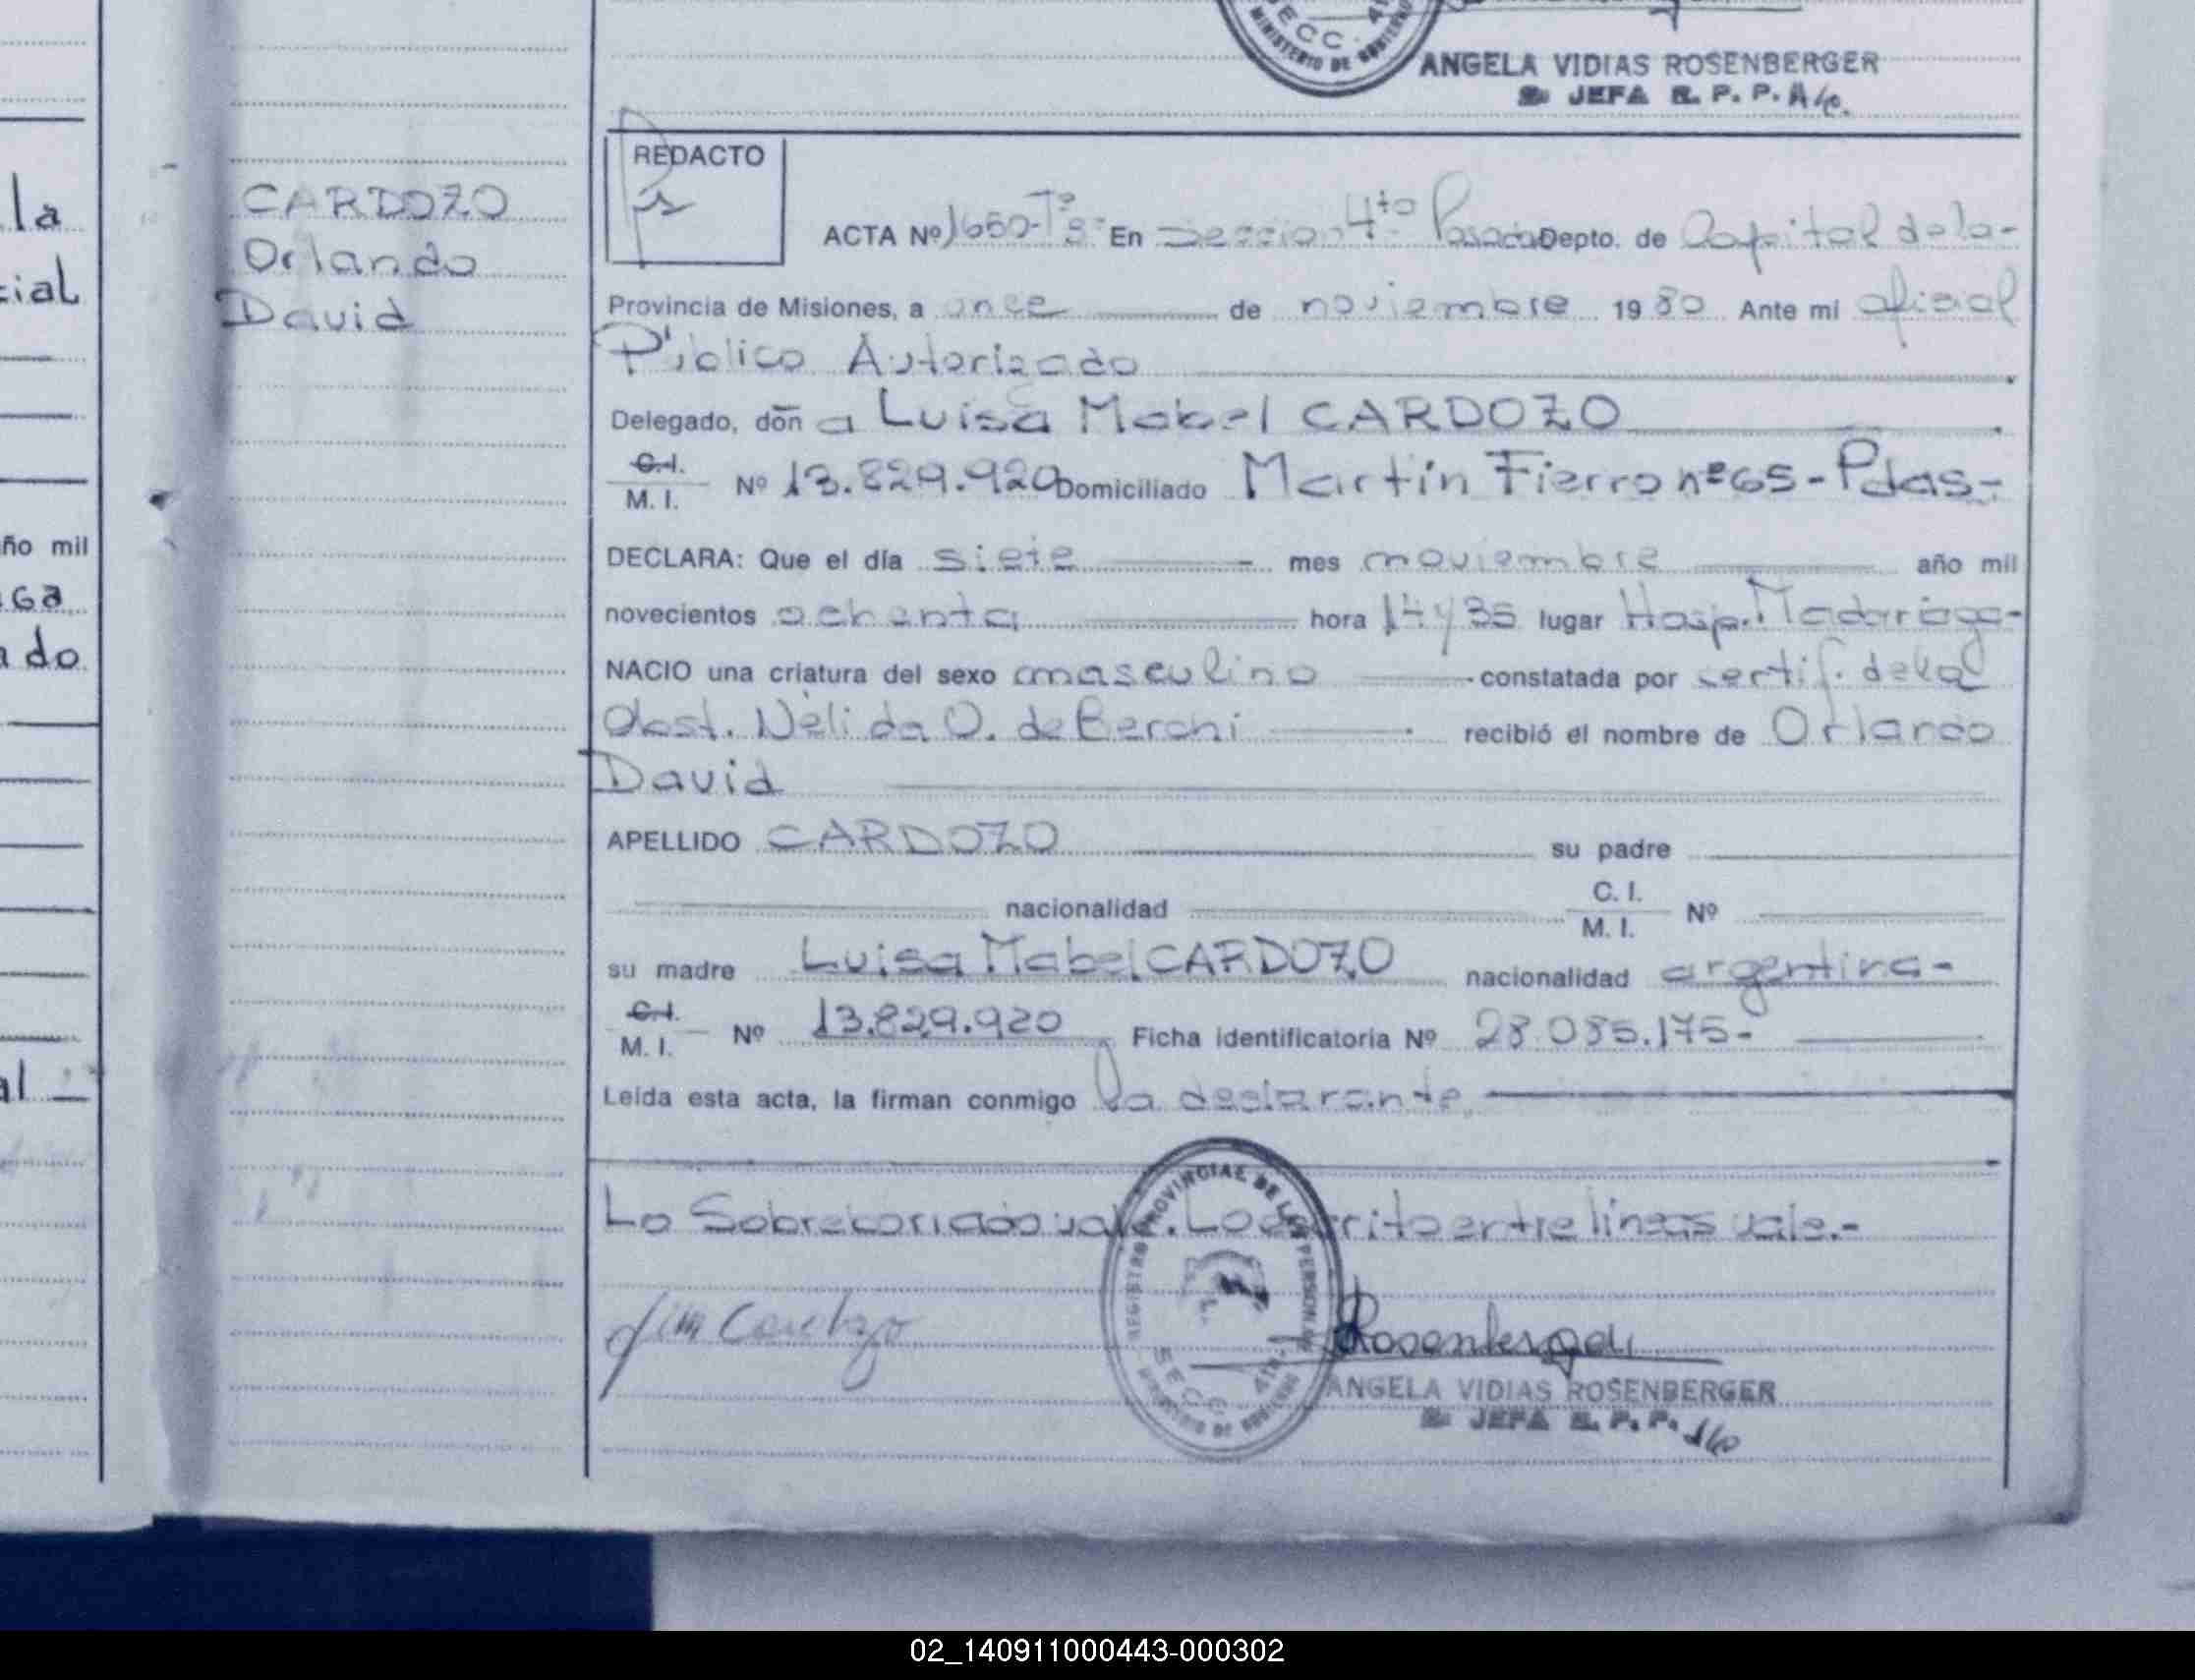 SECC. 4
MINISTERIO DE GOBIERNO
ANGELA VIDIAS ROSENBERGER
JEFA R. P. P.
la
cial
ño mil
ado
al
CARDOZO
Orlando
David
REDACTO
ACTA Nº 1650-Tº 8º En Sección 4ta Posadas Depto. de Capital de la-
Provincia de Misiones, a once de noviembre 1980 Ante mi oficial
Público Autorizado
Delegado, doña Luisa Mabel CARDOZO
C.I.
M. I. Nº 13.829.920 Domiciliado Martín Fierro nº 65-Pdas-
DECLARA: Que el día siete mes noviembre año mil
novecientos ochenta hora 14 y 35 lugar Hosp. Madariaga-
NACIO una criatura del sexo masculino constatada por certif. de la
Obst. Nélida O. de Berchi recibió el nombre de Orlando
David
APELLIDO CARDOZO su padre
nacionalidad C. I.
M. I. Nº
su madre Luisa Mabel CARDOZO nacionalidad argentina-
C.I.
M. I. Nº 13.829.920 Ficha identificatoria Nº 28.085.175-
Leída esta acta, la firman conmigo la declarante.
Lo Sobreborriado vale. Lo escrito entre líneas vale.-
REGISTRO PROVINCIAL DE LAS PERSONAS
SECC. 4ta
MINISTERIO DE GOBIERNO
Rosenberger
ANGELA VIDIAS ROSENBERGER
JEFA R. P. P.
02_140911000443-000302